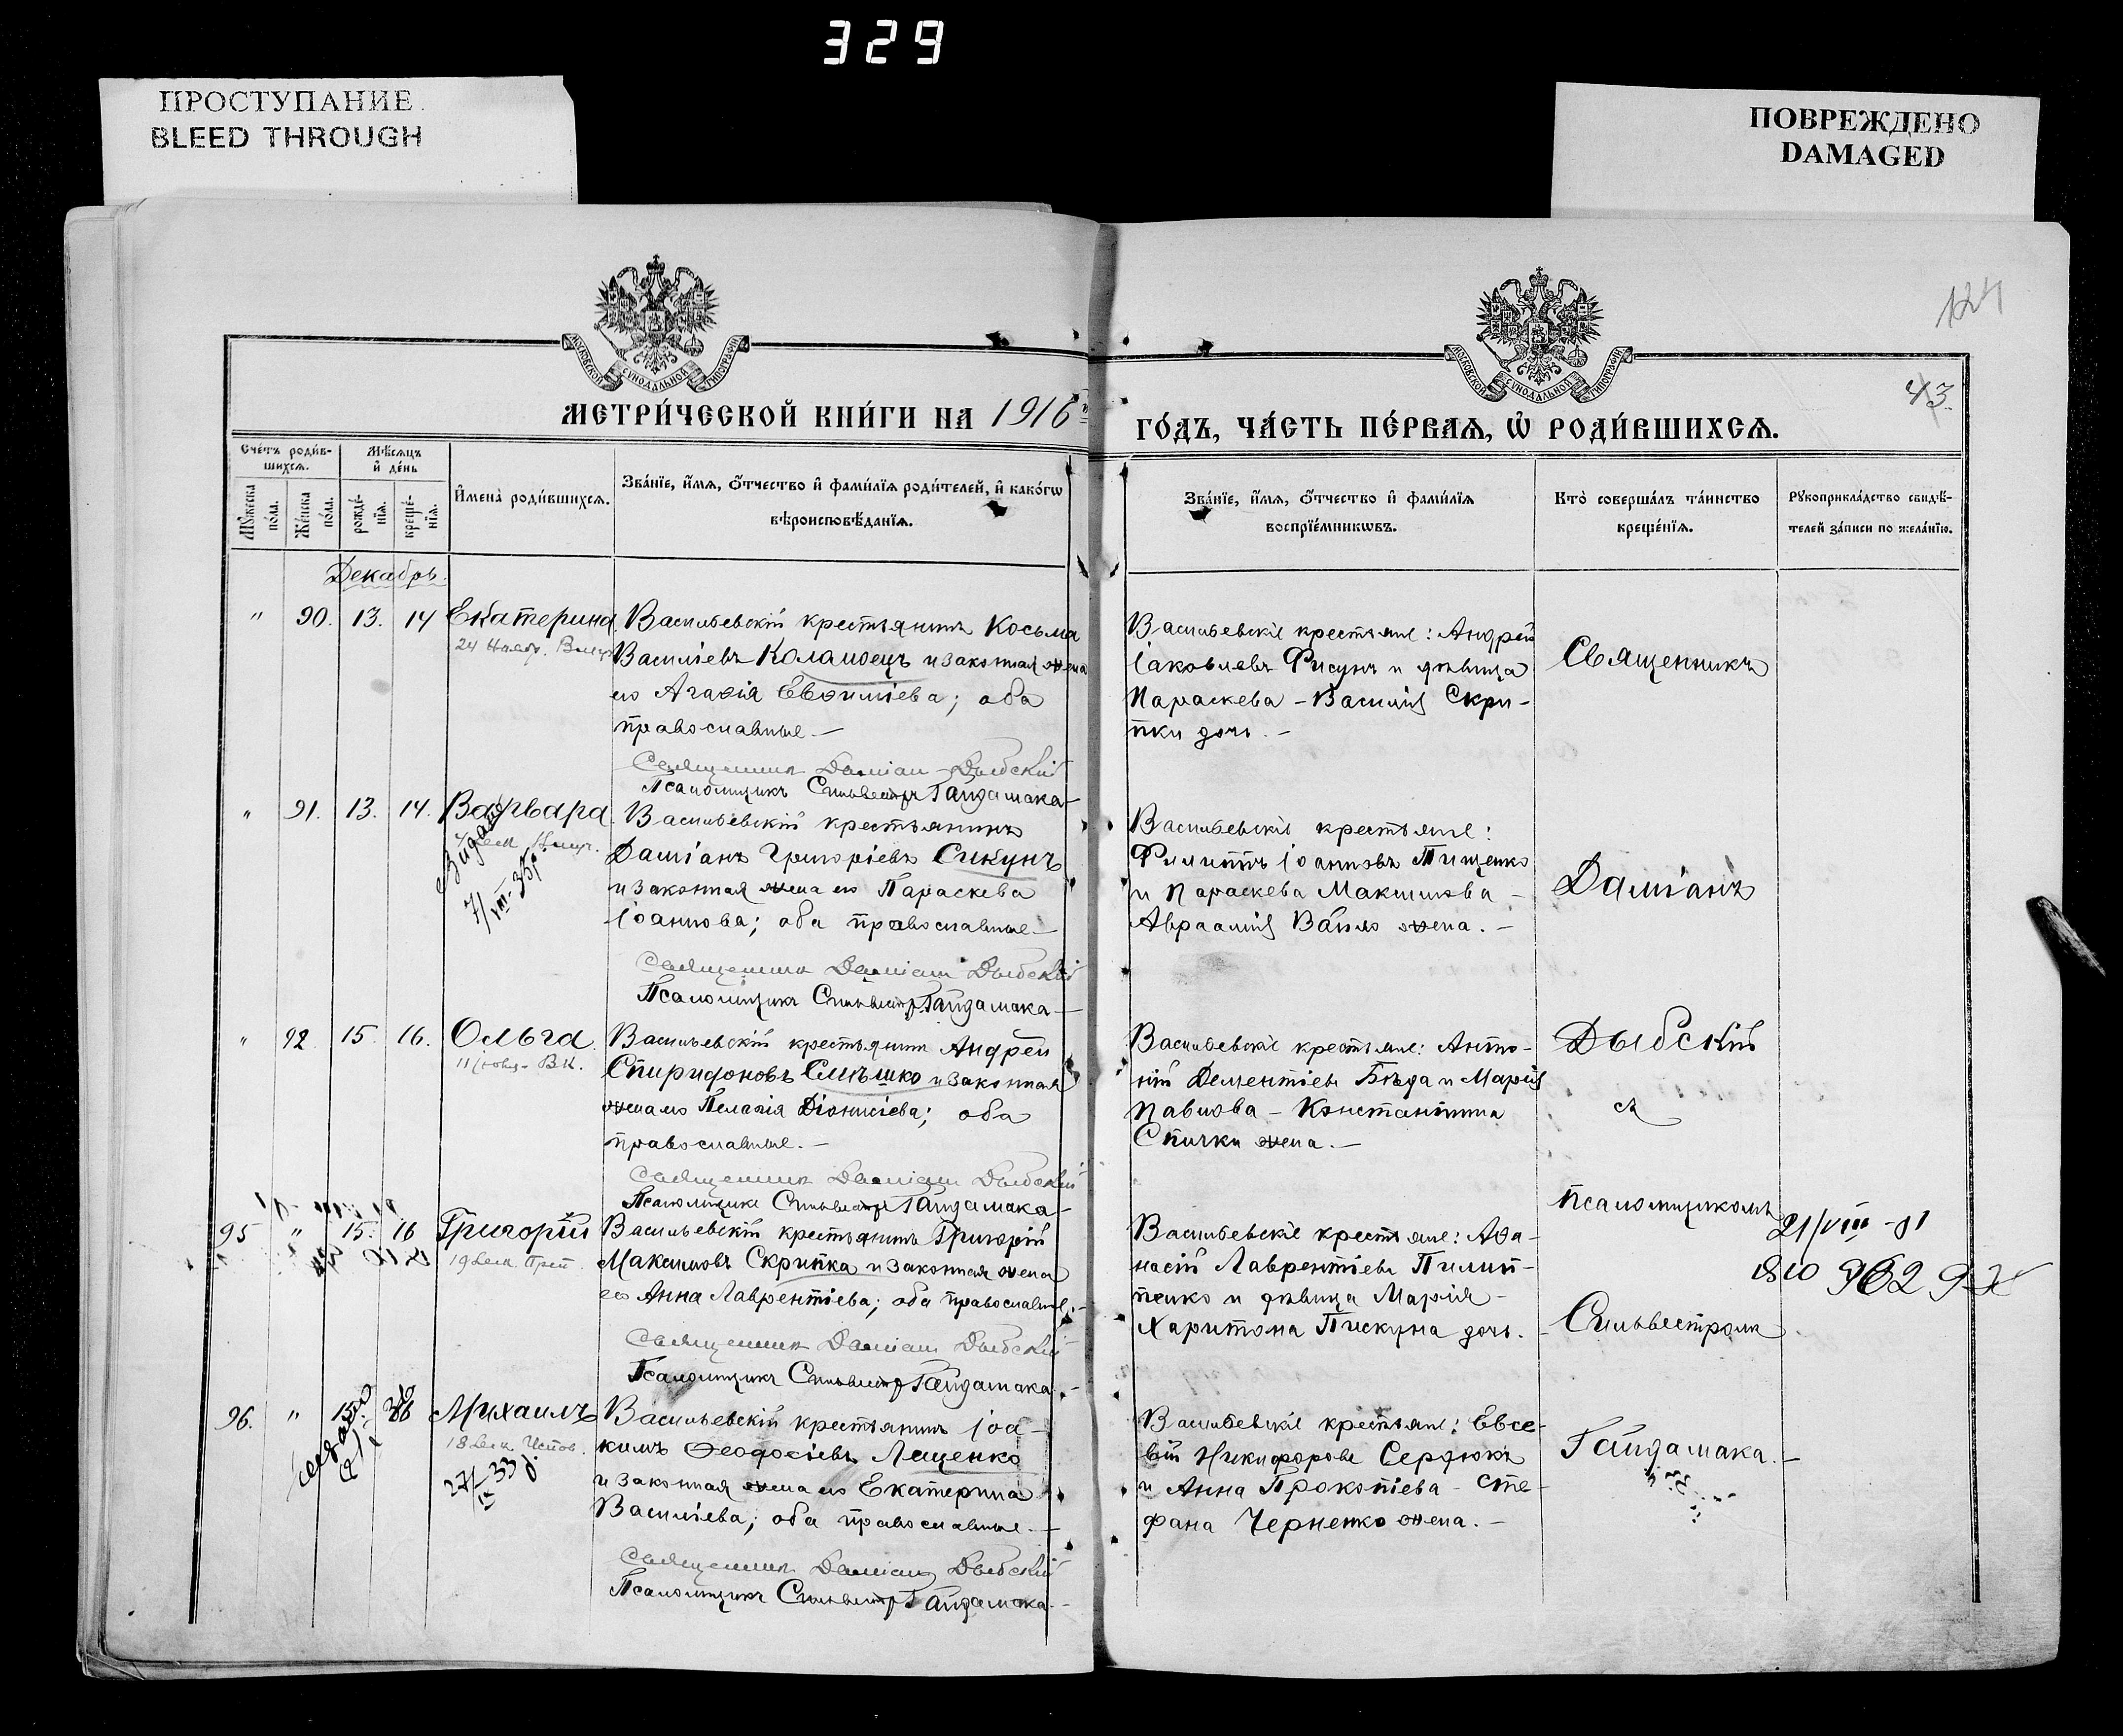 329
ПРОСТУПАНИЕ
BLEED THROUGH
ПОВРЕЖДЕНО
DAMAGED
124
МОСКОВСКОЙ СУНОДАЛЬНОЙ ТИПОГРАФІИ
МОСКОВСКОЙ СУНОДАЛЬНОЙ ТИПОГРАФІИ
43.
МЕТРИ́ЧЕСКОЙ КНИ́ГИ НА 1916й
ГО́ДЪ, ЧА́СТЬ ПЕ́РВАЯ, Ѽ РОДИ́ВШИХСЯ.
Сче́тъ роди́в-
шихся.
Мѣ́сяцъ
и҆ де́нь
Мꙋ́жеска
по́ла.
Же́нска
по́ла.
рожде́-
нїя.
креще́-
нїя.
И҆мена̀ роди́вшихся.
Зва́нїе, и҆́мя, ѻ҆́тчество и҆ фами́лїя роди́телей, и҆ како́гѡ
вѣроисповѣ́данїя.
Зва́нїе, и҆́мя, ѻ҆́тчество и҆ фами́лїя
воспрїе́мникѡвъ.
Кто̀ соверша́лъ та́инство
креще́нїя.
Рꙋкоприкла́дство свидѣ́-
телей за́писи по жела́нїю.
Декабрь.
" 90. 13. 14 Екатерина
24 Нояб.
Васильевскій крестьянинъ Косьма
Василіевъ Коломоецъ и законная жена
его Агафія Евѳиміева; оба
православные.—
Священникъ Даміанъ Дыбскій
Псаломщикъ Сильвестръ Гайдамака—
Васильевскіе крестьяне: Андрей
Іаковлевъ Фисунъ и дѣвица
Параскева – Василія Скри-
пки дочь.—
Священникъ
" 91. 13. 14. Варвара
7/VIII-35
Васильевскій крестьянинъ
Даміанъ Григоріевъ Сикунъ
и законная жена его Параскева
Іоаннова; оба православные—
Священникъ Даміанъ Дыбскій
Псаломщикъ Сильвестръ Гайдамака—
Васильевскіе крестьяне:
Филиппъ Іоанновъ Тищенко
и Параскева Максимова –
Авраамія жена.—
Даміанъ
" 92 15. 16. Ольга
11 Іюля
Васильевскій крестьянинъ Андрей
Спиридоновъ Слѣшко и законная
жена его Пелагія Діонисіева; оба
православные.—
Священникъ Даміанъ Дыбскій
Псаломщикъ Сильвестръ Гайдамака—
Васильевскіе крестьяне: Анто-
ній Дементіевъ Бѣда и Марія
Павлова – Константина
Спички жена.—
Дыбскій
съ
95 " 15. 16 Григорій
19 Дек.
Васильевскій крестьянинъ Григорій
Максимовъ Скрипка и законная жена
его Анна Лаврентіева; оба православные.—
Священникъ Даміанъ Дыбскій
Псаломщикъ Сильвестръ Гайдамака.—
Васильевскіе крестьяне: Аѳа-
насій Лаврентіевъ Пилип-
пенко и дѣвица Марія –
Харитона Пискуна дочь.—
псаломщикомъ
21/VIII
Сильвестромъ
96. " 15. 16 Михаилъ
18 Дек.
27/IX 33
Васильевскій крестьянинъ Іоа-
кимъ Ѳеодосіевъ Лещенко
и законная жена его Екатерина
Василіева; оба православные.—
Священникъ Даміанъ Дыбскій
Псаломщикъ Сильвестръ Гайдамака.—
Васильевскіе крестьяне: Евсе-
вій Никифоровъ Сердюкъ
и Анна Прокопіева – Сте-
фана Черненко жена.—
Гайдамака.—